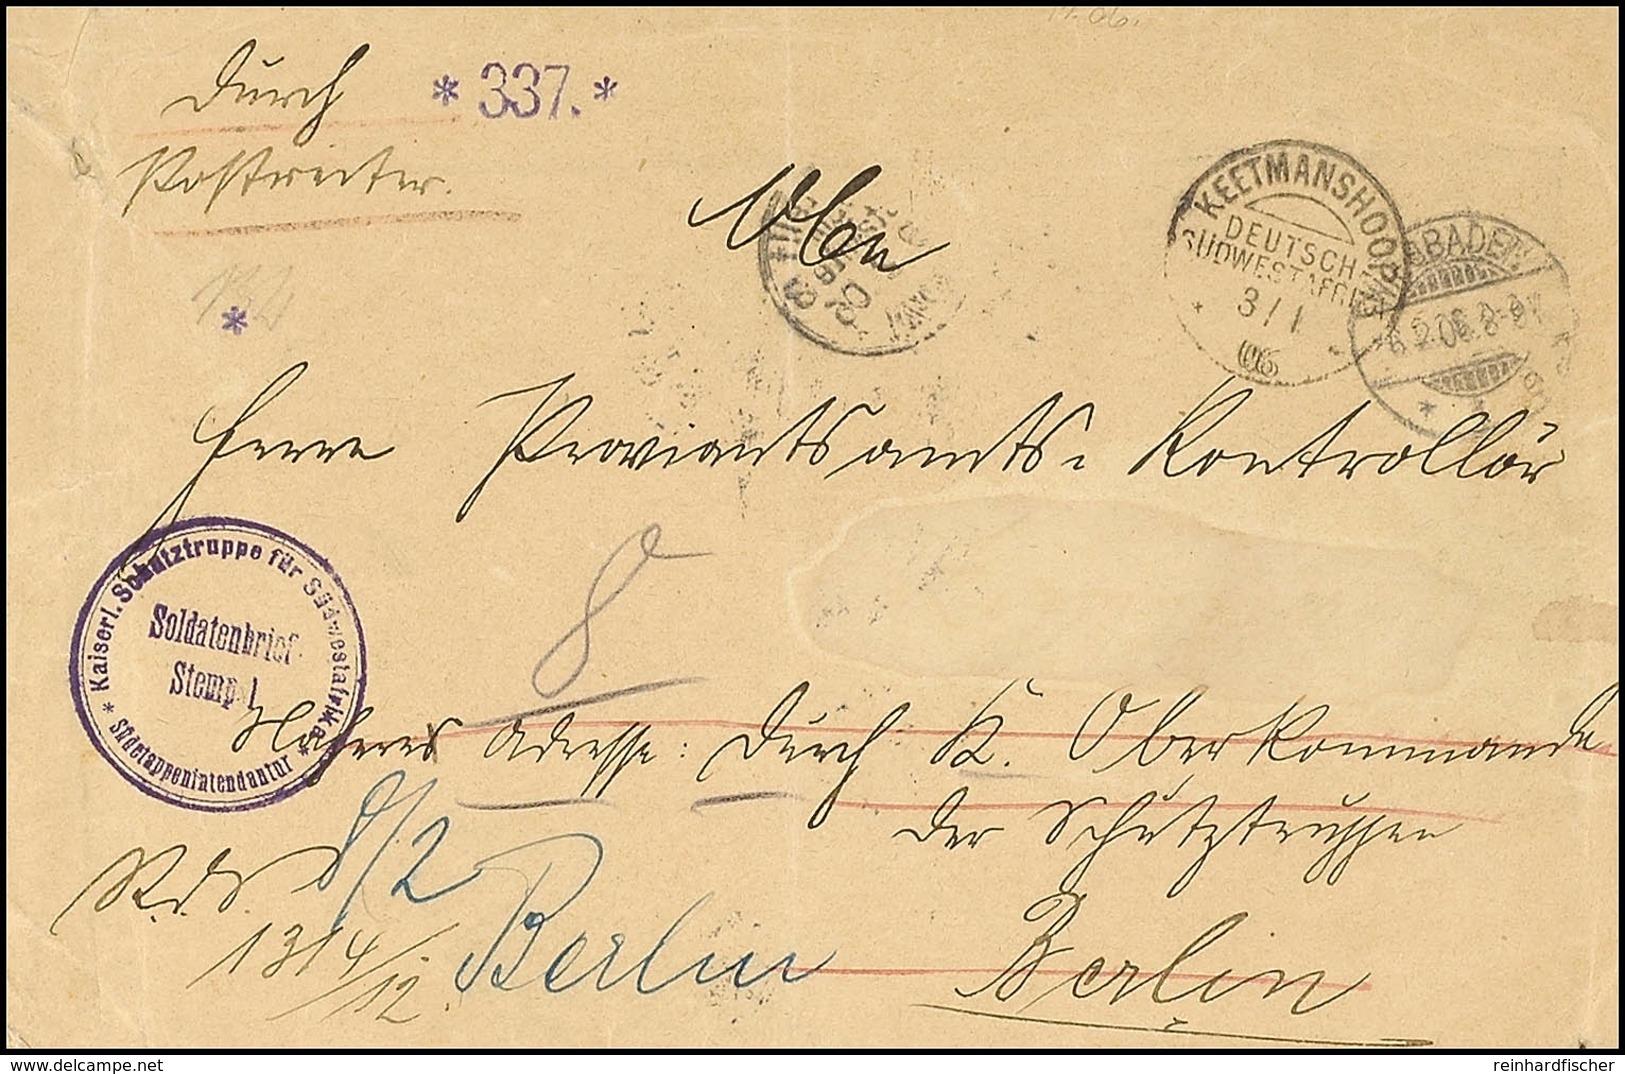 14. 06.
Durch
* 337. *
Postreiter.
An
KEETMANSHOOP
DEUTSCH-
SÜDWESTAFRIKA
3/1
06
6.2.06. 8-9V
*
Herrn Proviantsamts-Kontrollör
8
* Kaiserl. Schutztruppe für Südwestafrika *
Soldatenbrief-
Stempel
Südetappenintendantur
Nähere Adresse: Durch K. Oberkommando
der Schutztruppen
8/2
Berlin
Berlin
1314/12.
delcampe.net
reinhardfischer